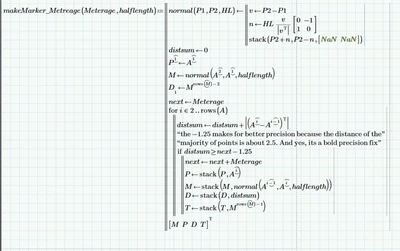 makeMarker_Metreage(Meterage, halflength):=
normal(P1, P2, HL)←
v←P2−P1
n←HL v/|vᵀ| [0 −1 1 0]
stack(P2+n, P2−n, [NaN NaN])
distsum←0
P←A
M←normal(A, A, halflength)
D←M^rows(M)−2
next←Meterage
for i∈2..rows(A)
distsum←distsum+|(A−A)ᵀ|
"the −1.25 makes for better precision because the distance of the"
"majority of points is about 2.5. And yes, its a bold precision fix"
if distsum≥next−1.25
next←next+Meterage
P←stack(P, A)
M←stack(M, normal(A, A, halflength))
D←stack(D, distsum)
T←stack(T, M^rows(M)−1)
[M P D T]ᵀ